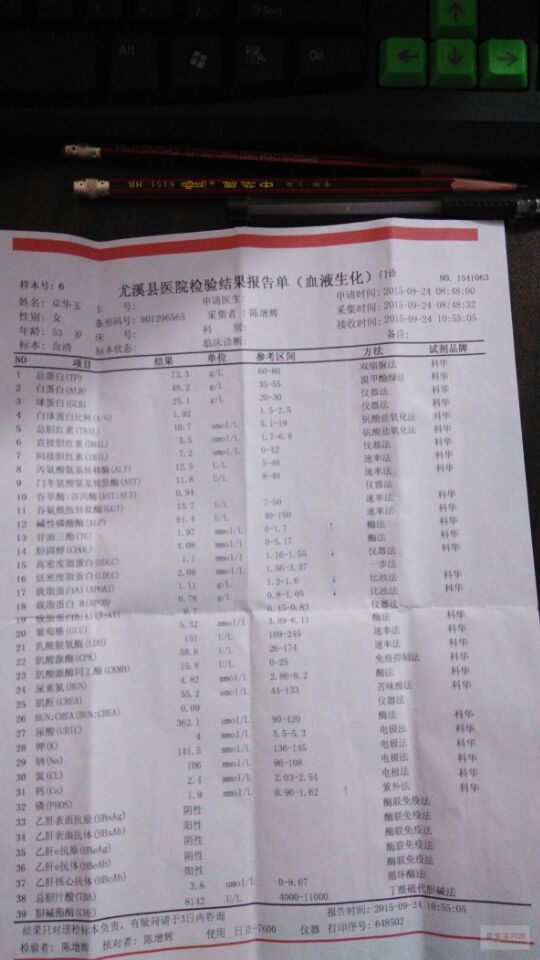 样本号: 6
尤溪县医院检验结果报告单（血液生化）门诊
NO. 1541063
姓名: 卓华玉 卡 号: 申请医生: 申请时间: 2015-09-24 08:48:00
性别: 女 条形码号: 901296565 采集者: 陈增辉 采集时间: 2015-09-24 08:48:32
年龄: 53 岁 床 号: 科 别: 接收时间: 2015-09-24 10:55:05
标本: 血清 标本状态: 临床诊断: 备注:
NO 项目 结果 单位 参考区间 方法 试剂品牌
1 总蛋白(TP) 73.3 g/L 60-80 双缩脲法 科华
2 白蛋白(ALB) 48.2 g/L 35-55 溴甲酚绿法 科华
3 球蛋白(GLB) 25.1 g/L 20-30 仪器法
4 白球蛋白比例(A/G) 1.92 1.5-2.5 仪器法
5 总胆红素(TBIL) 10.7 umol/L 5.1-19 钒酸盐氧化法 科华
6 直接胆红素(DBIL) 3.5 umol/L 1.7-6.8 钒酸盐氧化法 科华
7 间接胆红素(IBIL) 7.2 umol/L 0-12 仪器法
8 丙氨酸氨基转移酶(ALT) 12.5 U/L 5-40 速率法 科华
9 门冬氨酸氨基转移酶(AST) 11.8 U/L 8-40 速率法 科华
10 谷草酶:谷丙酶(AST:ALT) 0.94 仪器法
11 谷氨酰胺转肽酶(GGT) 13.7 U/L 7-50 速率法 科华
12 碱性磷酸酶(ALP) 61.4 U/L 40-150 速率法 科华
13 甘油三酯(TG) 1.97 mmol/L 0-1.7 ↑ 酶法 科华
14 胆固醇(CHOL) 4.08 mmol/L 0-5.17 酶法 科华
15 高密度脂蛋白(HDLC) 1.1 mmol/l 1.16-1.55 ↓
16 低密度脂蛋白(LDLC) 2.08 mmol/L 1.56-3.37 一步法
17 载脂蛋白AI(APOAI) 1.11 g/L 1.2-1.6 ↓ 比浊法 科华
18 载脂蛋白 B(APOB) 0.78 g/L 0.8-1.05 ↓ 比浊法 科华
19 载脂蛋白B:AI 0.7 0.45-0.83 仪器法
20 葡萄糖(GLU) 5.32 mmol/l 3.89-6.11 酶法 科华
21 乳酸脱氢酶(LDH) 151 U/L 109-245 速率法 科华
22 肌酸激酶(CPK) 58.6 U/L 26-174 速率法 科华
23 肌酸激酶同工酶(CKMB) 15.8 U/L 0-25 免疫抑制法 科华
24 尿素氮(BUN) 4.82 mmol/L 2.86-8.2 酶法 科华
25 肌酐(CREA) 55.2 umol/L 44-133 苦味酸法 科华
26 BUN:CREA(BUN:CREA) 0.09 仪器法
27 尿酸(URIC) 362.1 umol/L 90-420 酶法 科华
28 钾(K) 4 mmol/L 3.5-5.3 电极法
29 钠(Na) 141.5 mmol/L 136-145 电极法
30 氯(CL) 106 mmol/L 96-108 电极法
31 钙(Ca) 2.4 mmol/L 2.03-2.54 电极法
32 磷(PHOS) 1.9 mmol/L 0.96-1.62 ↑ 紫外法 科华
33 乙肝表面抗原(HBsAg) 阴性 酶联免疫法
34 乙肝表面抗体(HBsAb) 阳性 酶联免疫法
35 乙肝e抗原(HBeAg) 阴性 酶联免疫法
36 乙肝e抗体(HBeAb) 阴性 酶联免疫法
37 乙肝核心抗体(HBcAb) 阳性 酶联免疫法
38 总胆汁酸(TBA) 3.8 umol/L 0-9.67 循环酶法
39 胆碱酯酶(CHE) 8142 U/L 4000-11000 丁酰硫代胆碱法
结果只对送检标本负责，有疑问请于3日内咨询 报告时间: 2015-09-24 10:55:05
检验者: 陈增辉 核对者: 陈增辉 使用 日立-7600 仪器 打印序号: 648502